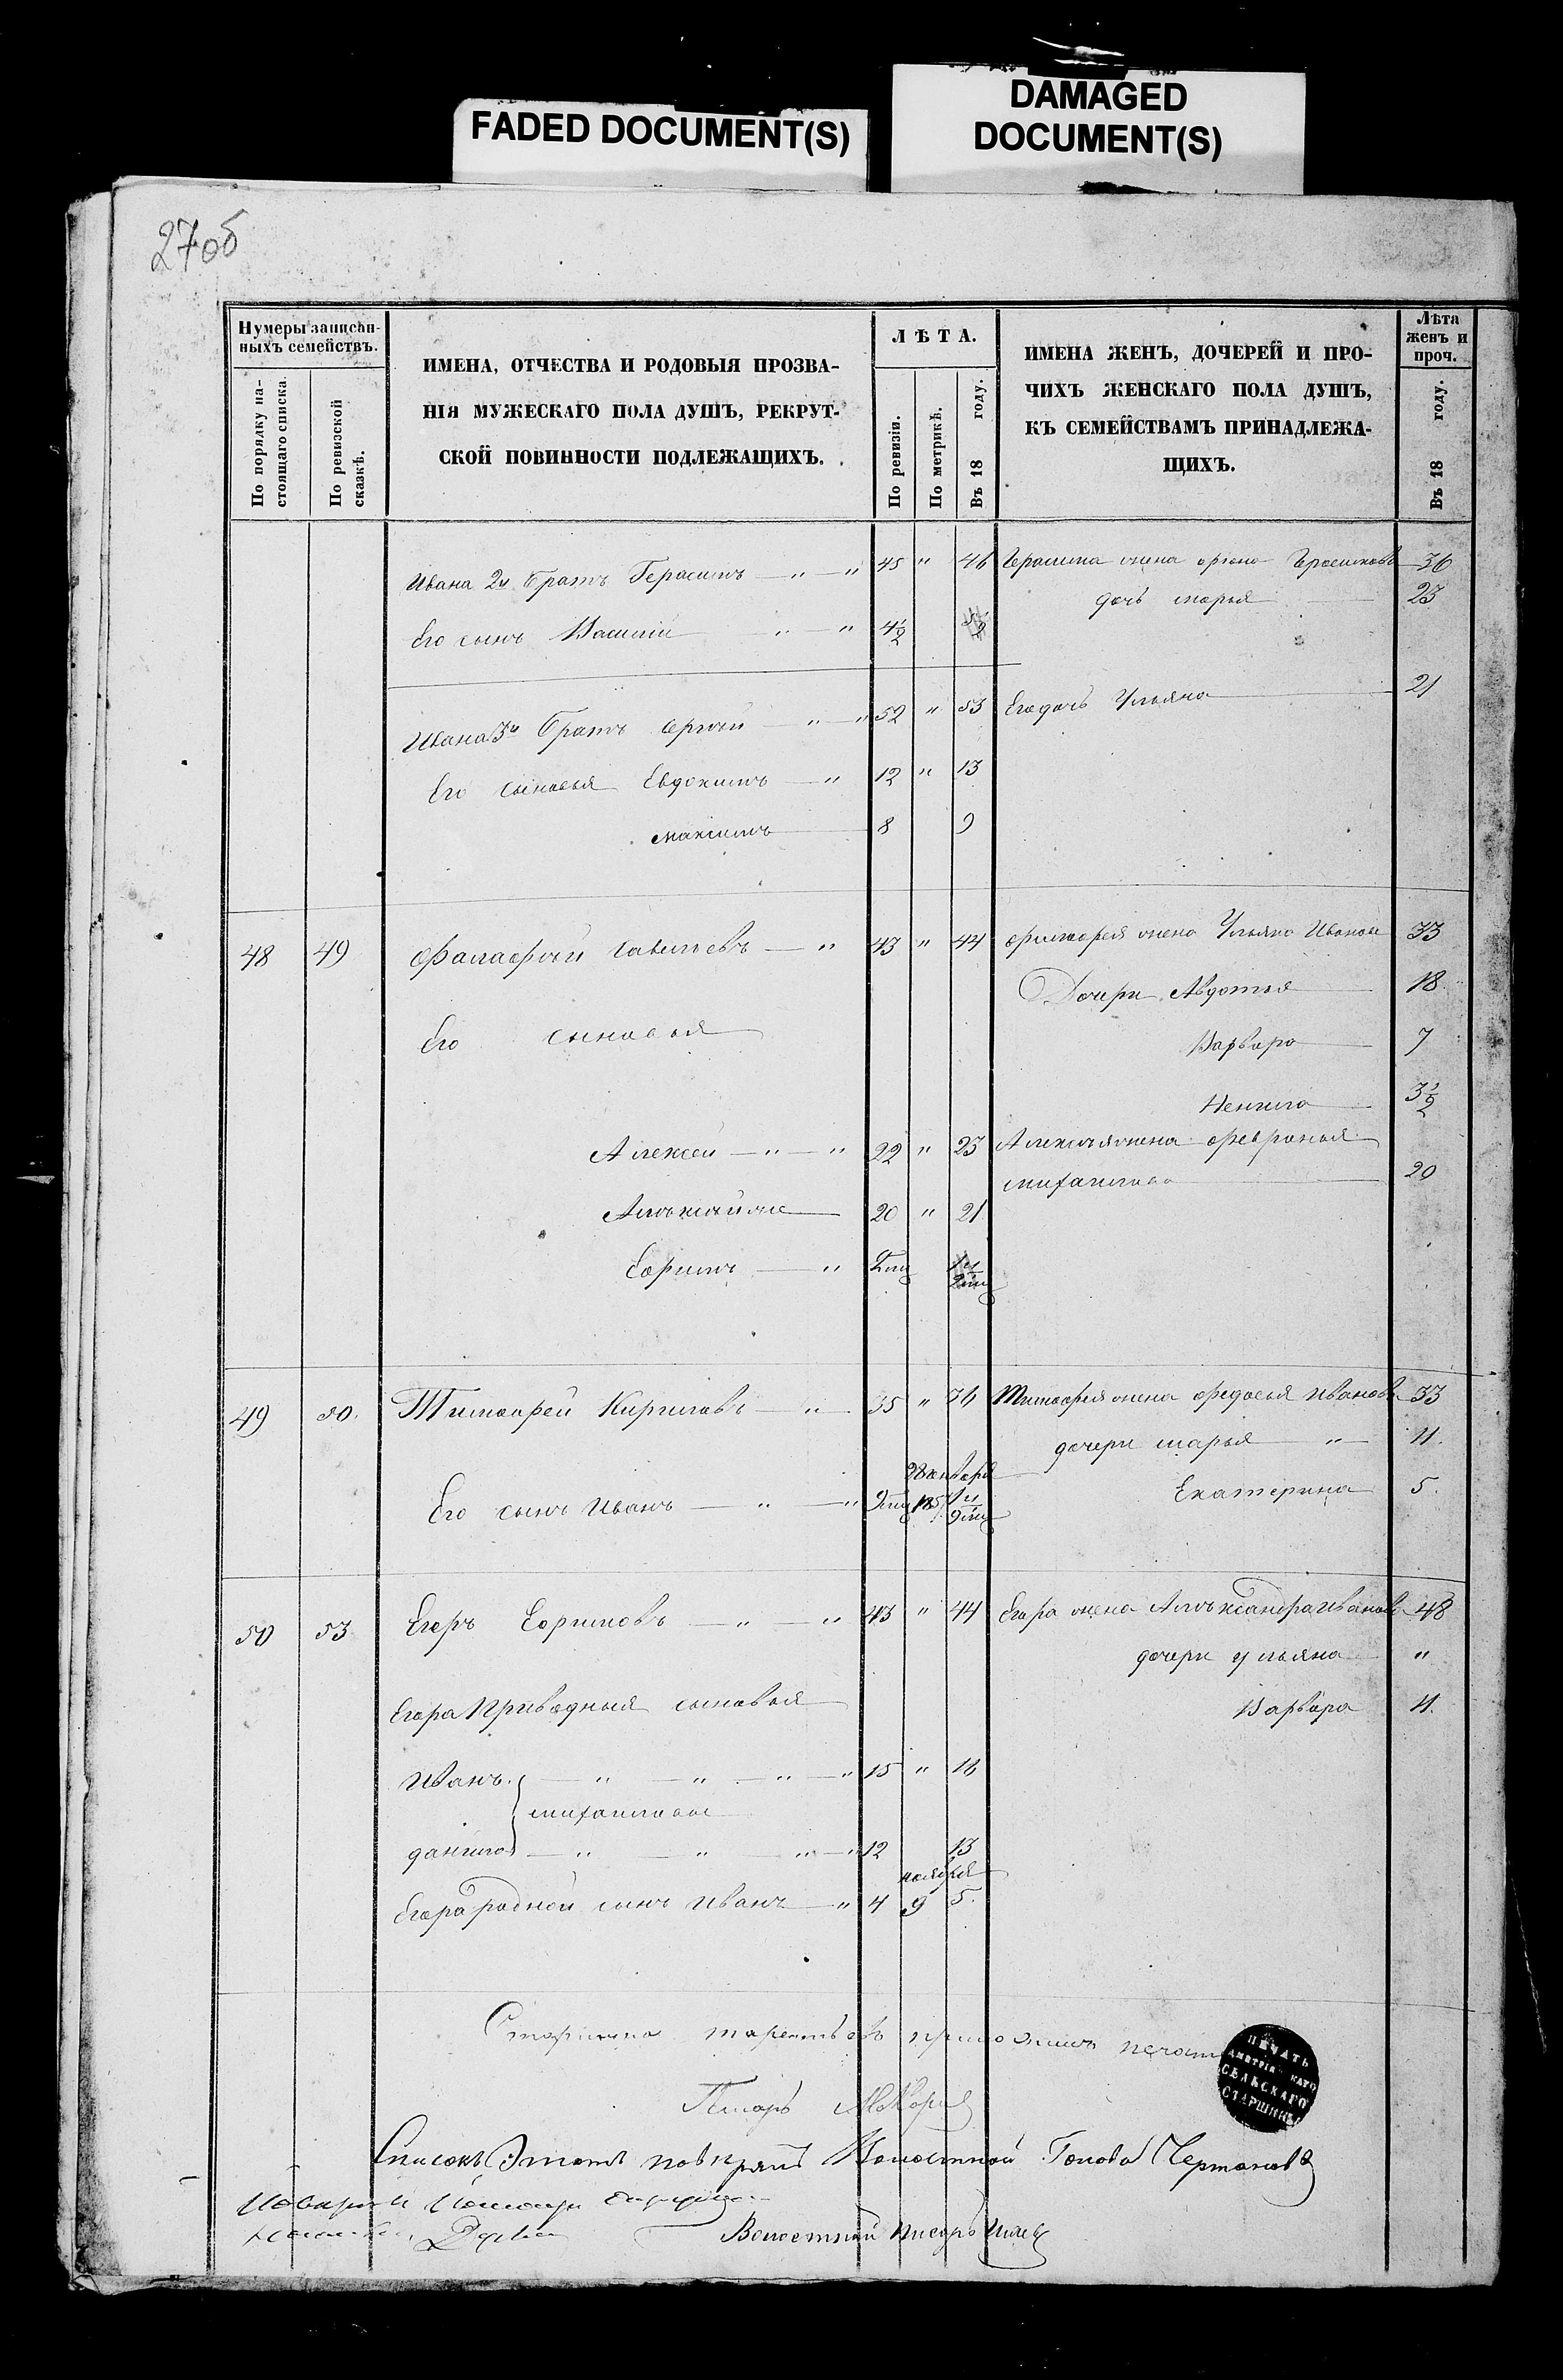 FADED DOCUMENT(S)
DAMAGED
DOCUMENT(S)
27об
Нумеры записан-
ныхъ семействъ.
По порядку на-
стоящаго списка.
По ревизской
сказкѣ.
ИМЕНА, ОТЧЕСТВА И РОДОВЫЯ ПРОЗВА-
НІЯ МУЖЕСКАГО ПОЛА ДУШЪ, РЕКРУТ-
СКОЙ ПОВИННОСТИ ПОДЛЕЖАЩИХЪ.
ЛѢТА.
По ревизіи.
По метрикѣ.
Въ 18 году.
ИМЕНА ЖЕНЪ, ДОЧЕРЕЙ И ПРО-
ЧИХЪ ЖЕНСКАГО ПОЛА ДУШЪ,
КЪ СЕМЕЙСТВАМЪ ПРИНАДЛЕЖА-
ЩИХЪ.
Лѣта
женъ и
проч.
Въ 18 году.
Ивана 2й братъ Герасимъ — " — " 45 " 46 Герасима жена 36
дочь марья 23
Его сынъ Василій — " — " 4½
Ивана 3й братъ Сергѣй — " — " 52 " 53 Его дочь Ульяна 21
Его сыновья Евдокимъ — " 12 " 13
максимъ 8 9
48 49 Савельевъ — " 43 " 44 жена Ульяна Иванова 33
Дочери Авдотья 18
Его сыновья
Варвара 7
Ненила 3½
Алексей — " — " 22 " 23 Алексея жена февронья
михайлова 20
20 " 21
Ефимъ — "
49 50. Тимофей Кириловъ — " 35 " 36 Тимофея жена федосья Иванова 33
дочери марья — " 11.
28 января
Его сынъ Иванъ — " — " 9 мц 185 1 и 9 мц
Екатерина 5.
50 53 Егоръ Ефимовъ — " — " 43 " 44 Егора жена Александра Иванова 48
дочери ульяна "
Егора Приводныя сыновья
Варвара 11.
Иванъ — " — " — " — " 15 " 16
михайловы
данило — " — " — " — " 12 13
ноября
Егора родной сынъ Иванъ — " 4 9 5.
Старшина приложилъ печать
ПЕЧАТЬ
СЕЛЬСКАГО
СТАРШИНЫ
Писарь
Списокъ Этотъ повѣрялъ Волостной Голова
Волостный Писарь